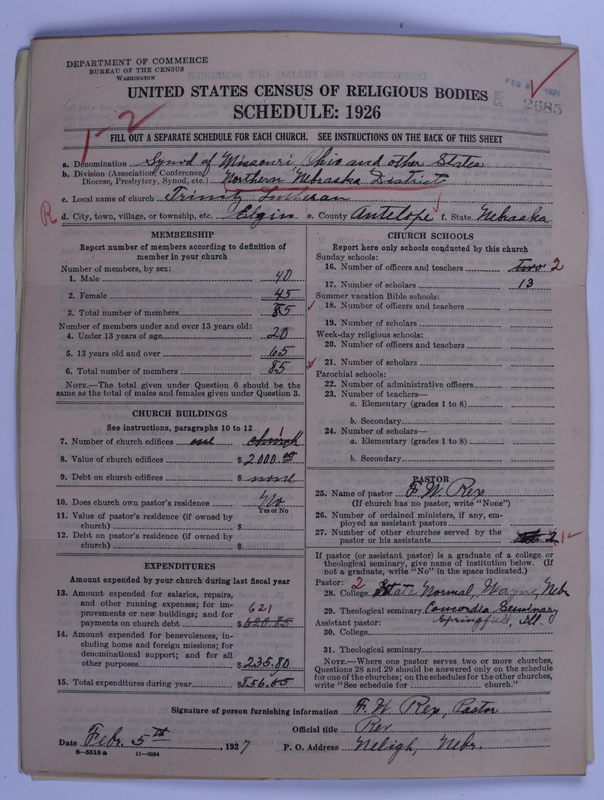 DEPARTMENT OF COMMERCE
BUREAU OF THE CENSUS
WASHINGTON
FEB 8 1927
2685
UNITED STATES CENSUS OF RELIGIOUS BODIES
SCHEDULE: 1926
1-2
FILL OUT A SEPARATE SCHEDULE FOR EACH CHURCH. SEE INSTRUCTIONS ON THE BACK OF THIS SHEET
a. Denomination Synod of Missouri, Ohio and other States
b. Division (Association, Conference, Diocese, Presbytery, Synod, etc.) Northern Nebraska District
c. Local name of church Trinity Lutheran
R d. City, town, village, or township, etc. Elgin e. County Antelope f. State Nebraska
MEMBERSHIP
Report number of members according to definition of
member in your church
Number of members, by sex:
1. Male 40
2. Female 45
3. Total number of members 85
Number of members under and over 13 years old:
4. Under 13 years of age 20
5. 13 years old and over 65
6. Total number of members 85
NOTE.—The total given under Question 6 should be the
same as the total of males and females given under Question 3.
CHURCH BUILDINGS
See instructions, paragraphs 10 to 12
7. Number of church edifices one church
8. Value of church edifices $ 2000.00
9. Debt on church edifices $ none
10. Does church own pastor's residence No
Yes or No
11. Value of pastor's residence (if owned by
church) $
12. Debt on pastor's residence (if owned by
church) $
EXPENDITURES
Amount expended by your church during last fiscal year
13. Amount expended for salaries, repairs,
and other running expenses; for im-
provements or new buildings; and for 621
payments on church debt $ 620.85
14. Amount expended for benevolences, in-
cluding home and foreign missions; for
denominational support; and for all
other purposes $ 235.80
15. Total expenditures during year $ 856.65
CHURCH SCHOOLS
Report here only schools conducted by this church
Sunday schools:
16. Number of officers and teachers two 2
17. Number of scholars 13
Summer vacation Bible schools:
18. Number of officers and teachers
19. Number of scholars
Week-day religious schools:
20. Number of officers and teachers
21. Number of scholars
Parochial schools:
22. Number of administrative officers
23. Number of teachers—
a. Elementary (grades 1 to 8)
b. Secondary
24. Number of scholars—
a. Elementary (grades 1 to 8)
b. Secondary
PASTOR
25. Name of pastor F. W. Rex
(If church has no pastor, write "None")
26. Number of ordained ministers, if any, em-
ployed as assistant pastors
27. Number of other churches served by the
pastor or his assistants 2
If pastor (or assistant pastor) is a graduate of a college or
theological seminary, give name of institution below. (If
not a graduate, write "No" in the space indicated.)
Pastor: 2
28. College State Normal, Wayne, Neb
29. Theological seminary Concordia Seminary
Assistant pastor: Springfield, Ill.
30. College
31. Theological seminary
NOTE.—Where one pastor serves two or more churches,
Questions 28 and 29 should be answered only on the schedule
for one of the churches; on the schedules for the other churches,
write "See schedule for church."
Signature of person furnishing information F. W. Rex, Pastor
Official title Rev
Date Febr. 5th, 1927 P. O. Address Neligh, Nebr.
8—5518 a 11—9284